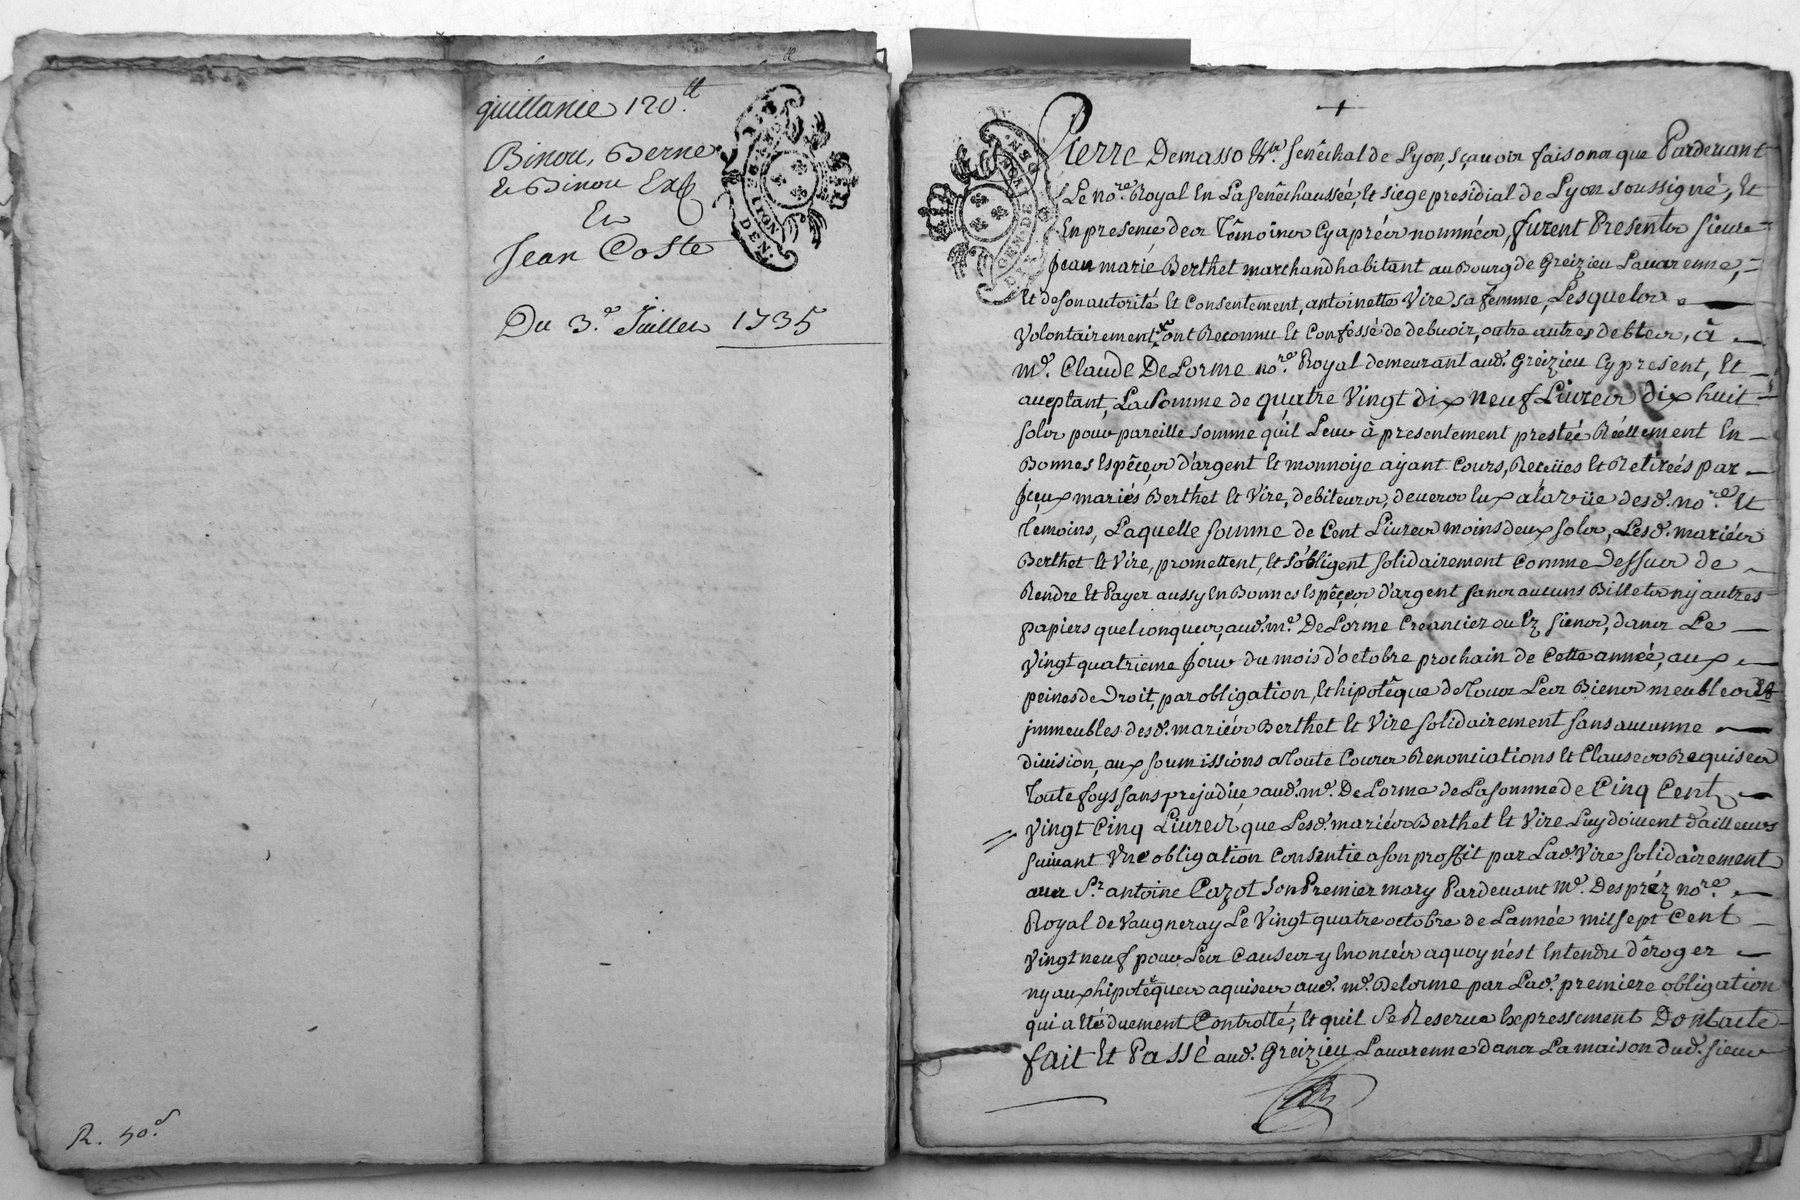 quittance 120.tt
Binou, Berne
& Binou
Et
Jean Coste
Du 3.e Juillet 1735
GEN. DE LYON
R. 50.s
GEN. DE LYON
Pierre Demasso Senêchal de Lyon, sçavoir faisons que Pardevant
Le no.re Royal En La senêchaussée, Et siege presidial de Lyon soussigné, Et
En presence des Têmoins Cy aprés nommés, furent Presents sieur
Jean marie Berthet marchand habitant au Bourg de Greizieu Lavarenne,
Et de son autorité Et Consentement, antoinette Vire sa femme, Lesquels
Volontairement ont Reconnu Et Confessé de debvoir, outre autres debtes, à
m.e Claude DeLorme no.re Royal demeurant aud. Greizieu Cy present, Et
aceptant, La somme de quatre Vingt dix neuf Livres dix huit
sols pour pareille somme qu'il Leur à presentement prestée Réellement En
Bonnes Espêces d'argent Et monnoye ayant Cours, Receües Et Retirées par
iceux mariés Berthet Et Vire, debiteurs, devers Eux a la vüe desd. no.re Et
Temoins, Laquelle somme de Cent Livres moins deux sols, Lesd. mariés
Berthet Et Vire, promettent, Et s'obligent solidairement Comme Dessus de
Rendre Et Payer aussy En Bonnes Espêces d'argent sans aucuns Billets ny autres
papiers quelconques, aud. m.e DeLorme Creancier ou Ez siens, dans Le
Vingt quatrieme Jour du mois d'octobre prochain de Cette année, aux
peines de Droit, par obligation, Et hipotêque de Tous Les Biens meubles Et
immeubles desd. mariés Berthet Et Vire solidairement sans aucune
division, aux soumissions a Toute Cours Renonciations Et Clauses Requises
Toute foys sans prejudice aud. m.e DeLorme de La somme de Cinq Cent
Vingt Cinq Livres, que Lesd. mariés Berthet Et Vire Luy doivent d'ailleurs
suivant Une obligation Consentie a son proffit par Lad. Vire solidairement
avec S.r antoine Cazot son Premier mary Pardevant M.e Despréz no.re
Royal de Vaugneray Le Vingt quatre octobre de L'année mil sept Cent
Vingt neuf pour Les Causes y Enoncés a quoy n'est Entendu dêroger
ny aux hipotêques aquises aud. m.e Delorme par Lad. premiere obligation
qui a Etés duement Controllé, Et qu'il se Reserve Expressement Dont acte
fait Et Passé aud. Greizieu Lavarenne dans La maison dud. sieur